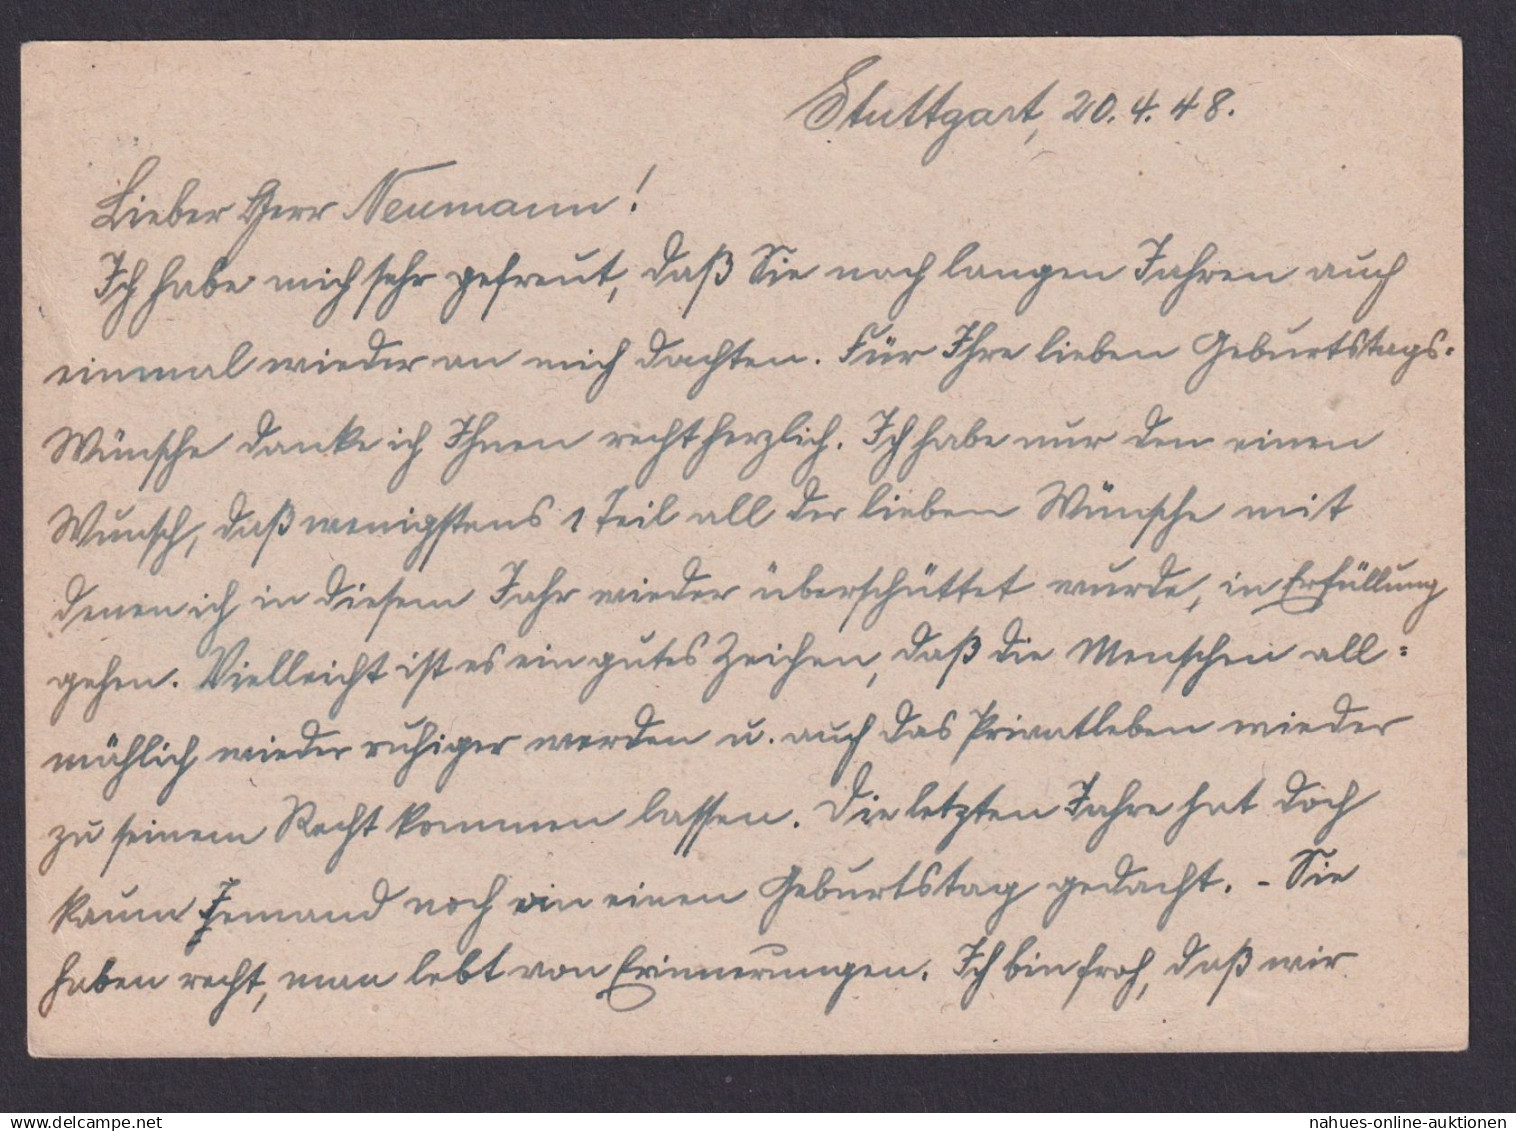 Stuttgart, 20.4.48.
Lieber Herr Neumann!
Ich habe mich sehr gefreut, daß Sie nach langen Jahren auch
einmal wieder an mich dachten. Für Ihre lieben Geburtstags-
Wünsche danke ich Ihnen recht herzlich. Ich habe nur den einen
Wunsch, daß wenigstens 1 Teil all der lieben Wünsche mit
denen ich in diesem Jahr wieder überschüttet wurde, in Erfüllung
gehen. Vielleicht ist es ein gutes Zeichen, daß die Menschen all=
mählich wieder ruhiger werden u. auch das Privatleben wieder
zu seinem Recht kommen lassen. Die letzten Jahre hat doch
kaum Jemand noch an einen Geburtstag gedacht. - Sie
haben recht, man lebt von Erinnerungen. Ich bin froh, daß wir
nahues-online-auktionen
delcampe.net